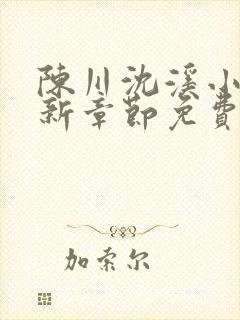 陳川沈溪小
新章節免費
加索尔